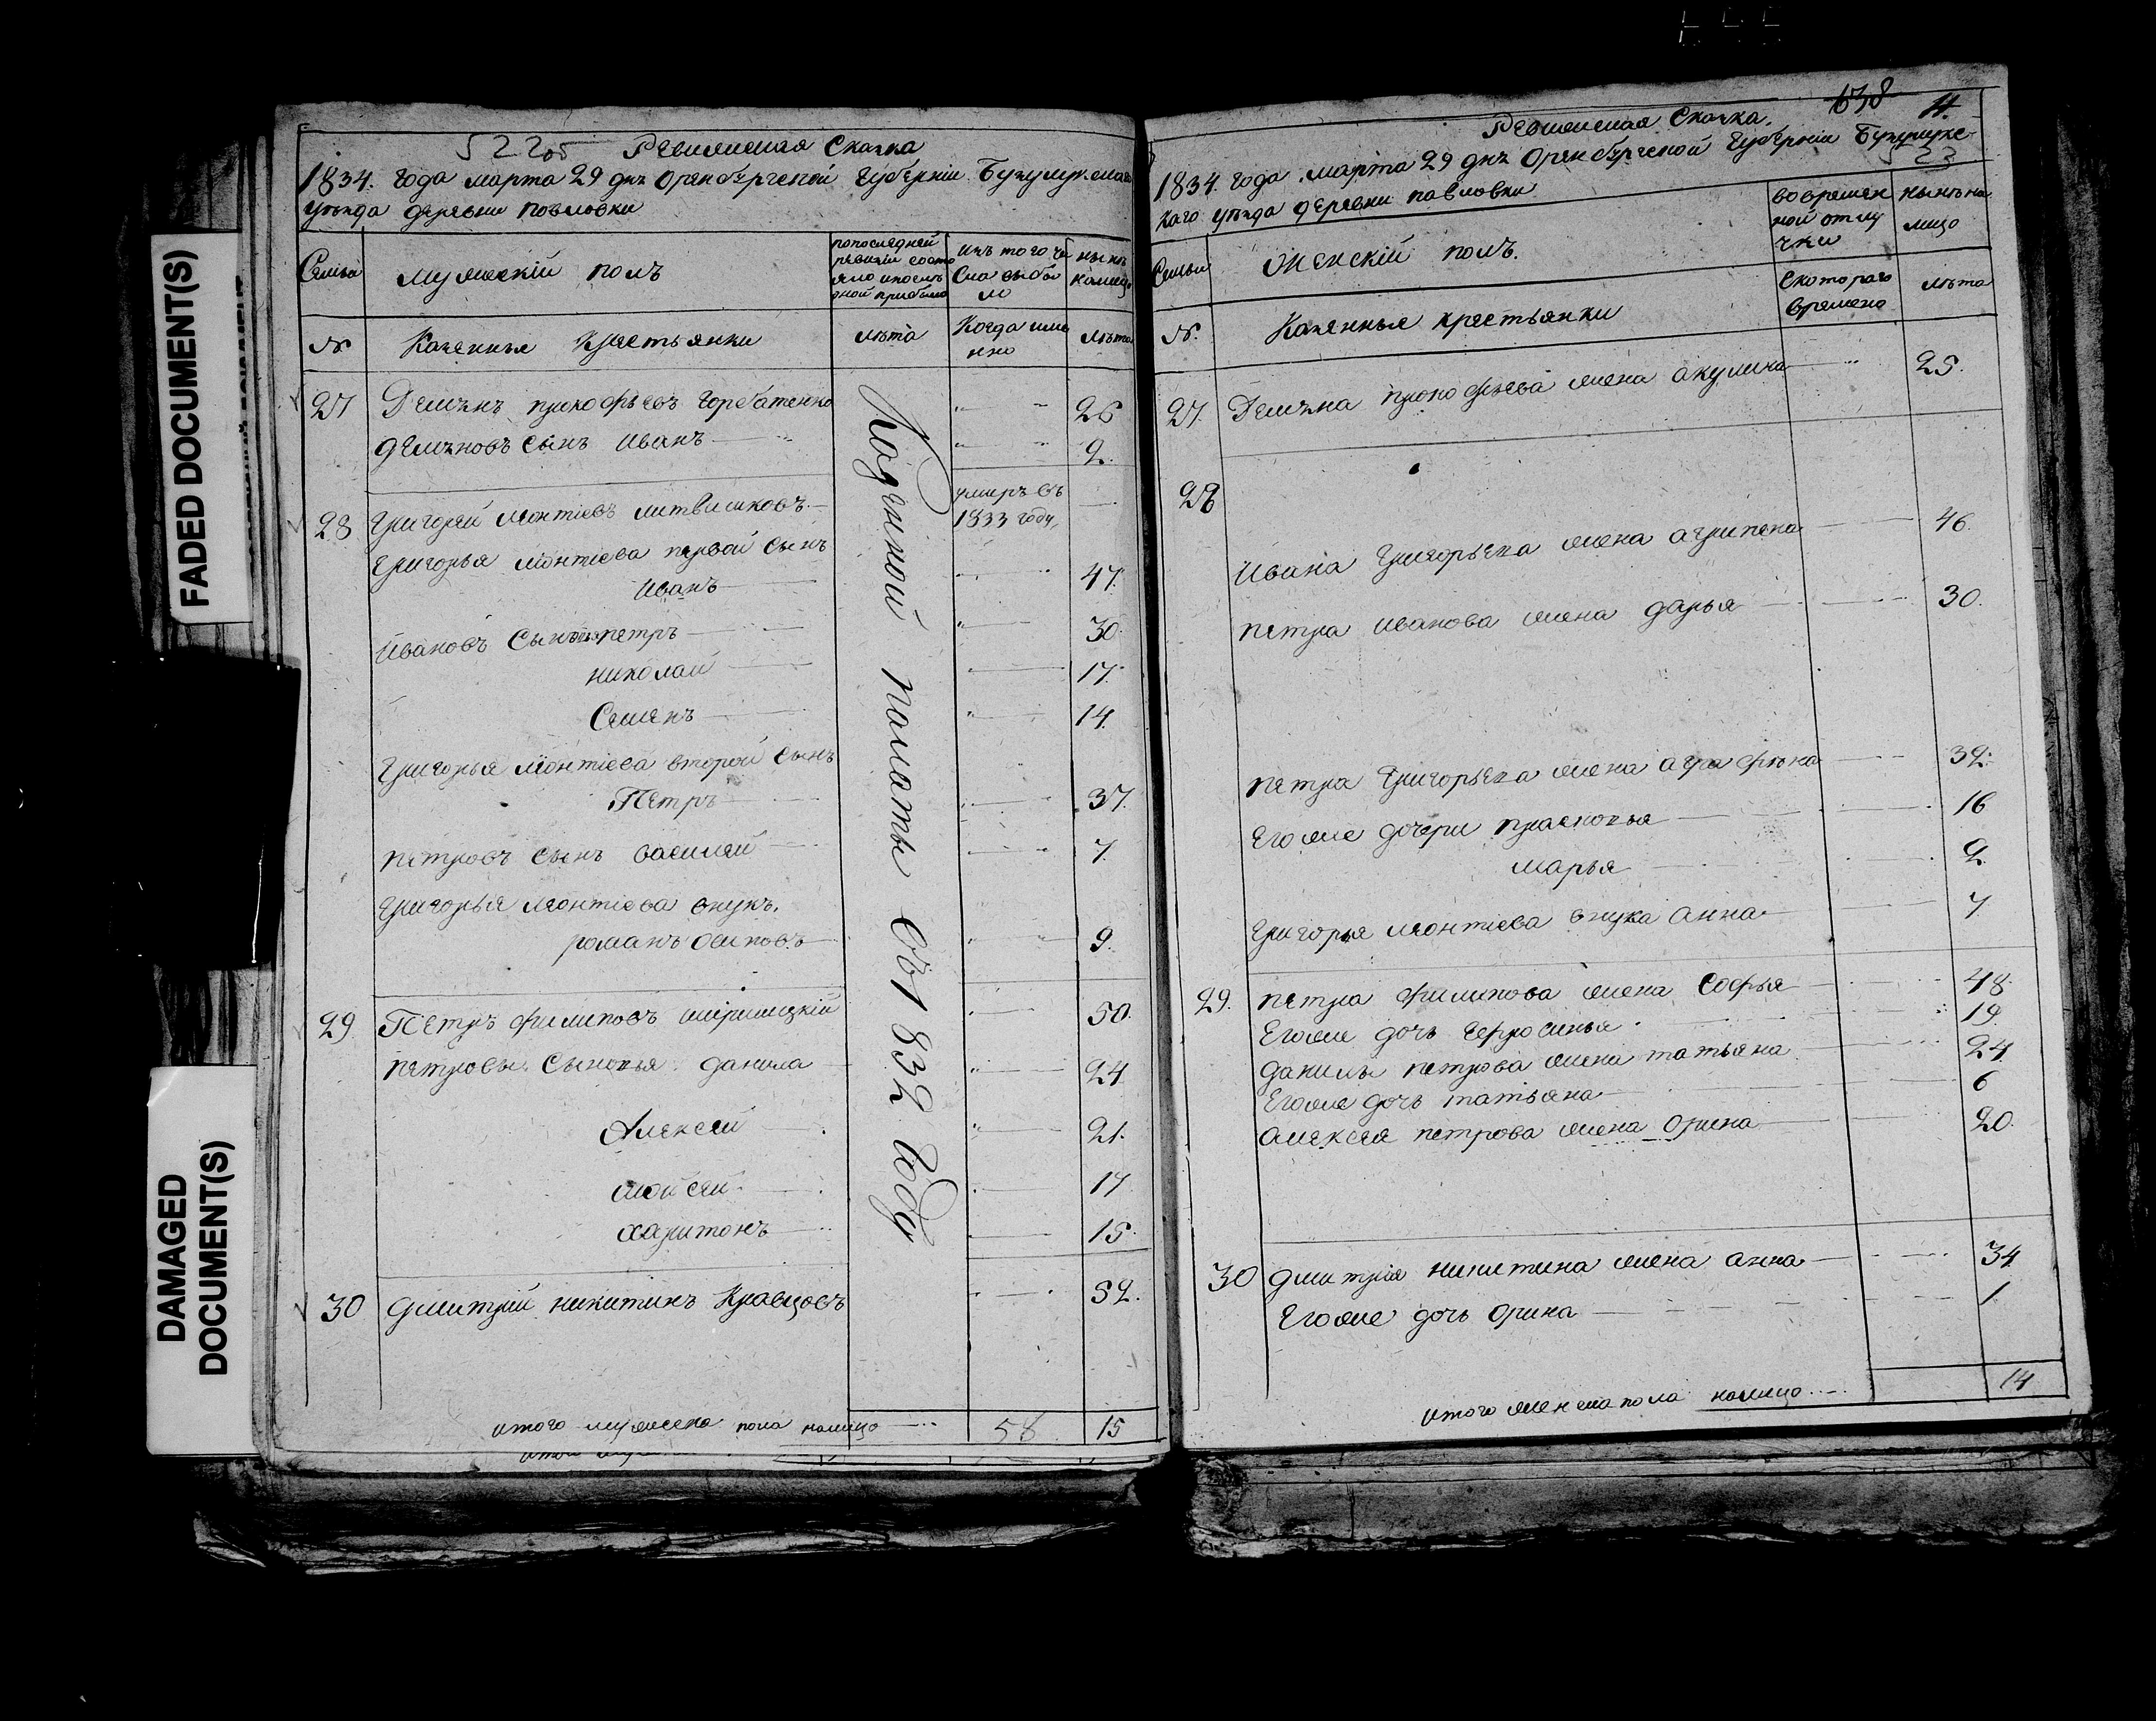 FADED DOCUMENT(S)
DAMAGED
DOCUMENT(S)
522об Ревижская Сказка
1834. года марта 29 дня Оренбургской Губернии Бузулукскаго
уѣзда деревни Повловки
Семьи
мужескій полъ
попоследней
ревизіи состо
яло ипослѣ
оной прибыло
Изъ того чи
сла выбы
ло
нынѣ
налицо
№
Казенные крестьянки
лѣта
Когда име
нно
лѣта
27 Демянъ прокофьевъ горбатенко 26
демяновъ сынъ иванъ 2
28 григорей леонтіевъ литвишковъ умеръ въ
1833 году
григорья леонтіева первой сынъ
иванъ 47.
ивановъ сынья петръ 30.
николай 17.
Семенъ 14.
григорья леонтіева второй сынъ
Петръ 37.
петровъ сынъ василей 7.
григорья леонтіева внукъ.
романъ осиповъ 9.
29 Петръ филиповъ 50.
петровы сыновья данила 24
Алексей 21.
мойсей 17
харитонъ 15.
30 дмитрий никитинъ Кравцовъ 32.
Казенной палаты въ 1832 году
итого мужеска пола налицо 58 15
638 11.
Ревижская Сказка.
523
1834. года марта 29 дня Оренбургской Губерніи Бузулукс
каго уѣзда деревни павловки
Семьи
Женскій полъ.
вовремен
ной отлу
чки
нынѣ на
лицо
№.
Казенные крестьянки
Скотораго
времени
лѣта
27. Демяна прокофьева жена акулина 25.
28
Ивана григорьева жена агрипена 46.
петра иванова жена дарья 30.
петра григорьева жена аграфѣна 32.
Егоже дочери прасковья 16
марья 2
григорья леонтіева внука анна 7
29. петра филипова жена Софья 48.
Егоже дочь 19.
данилы петрова жена татьяна 24
Егоже дочь татьяна 6
алексея петрова жена Орина 20.
30 дмитрія никитина жена анна 34
Егоже дочь орина 1.
итого женска пола налицо 14